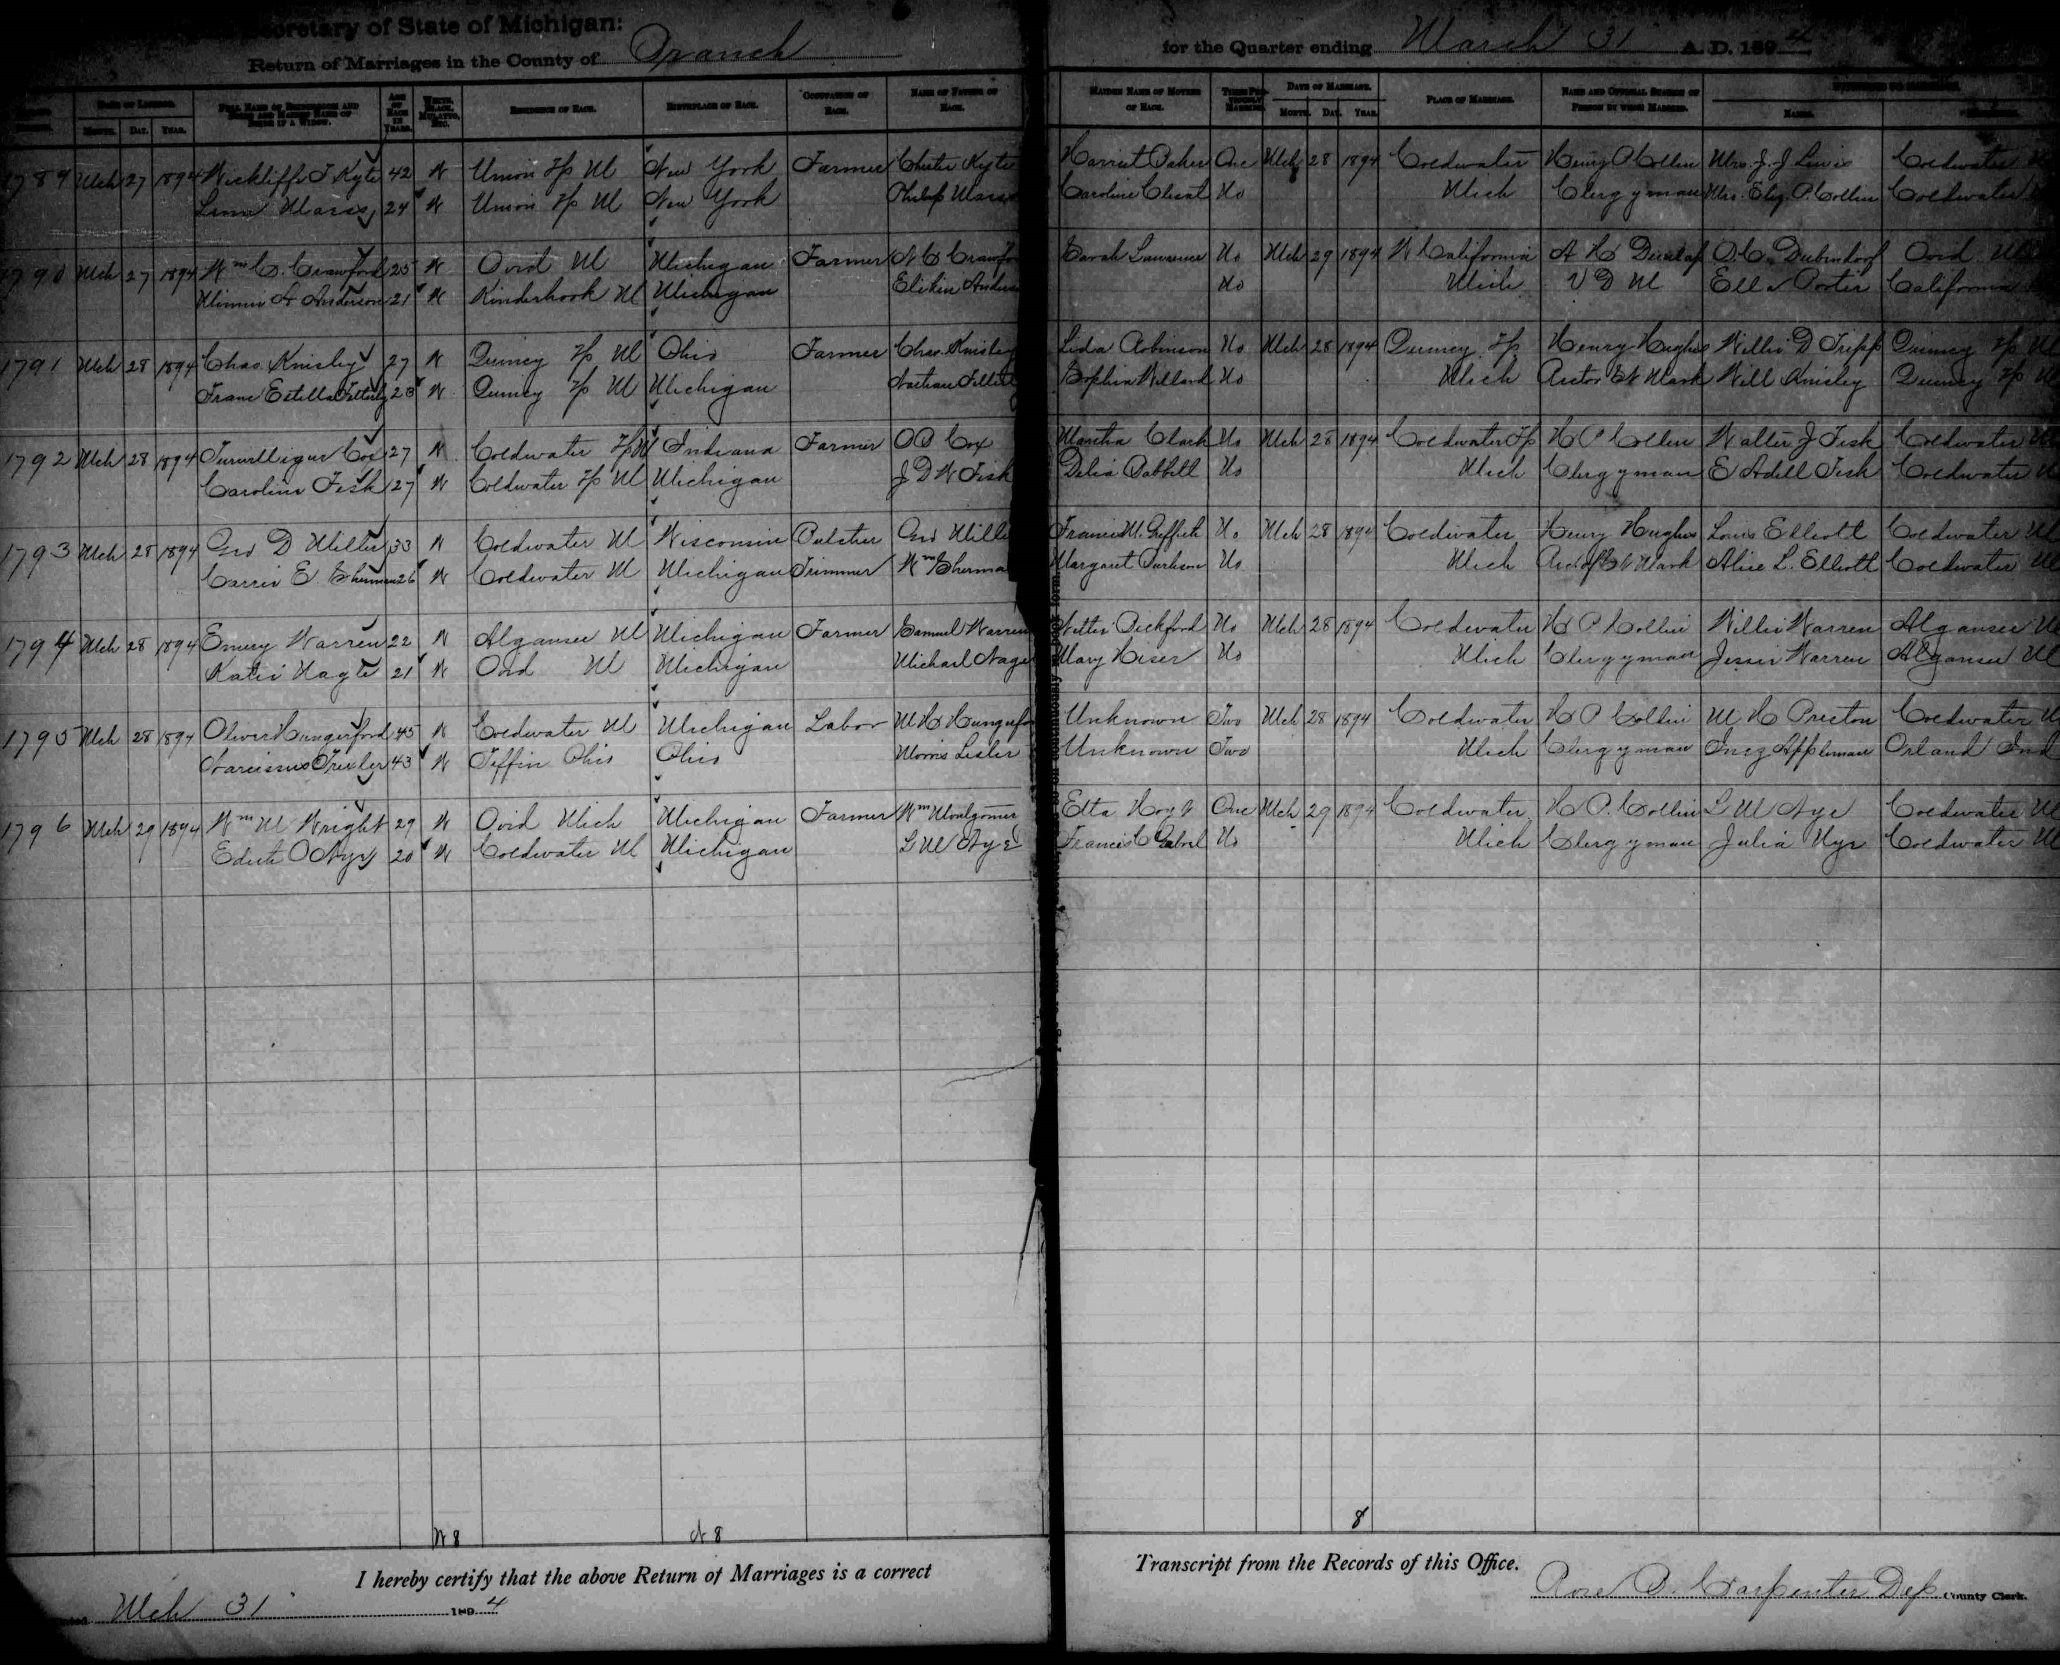 Secretary of State of Michigan:
Return of Marriages in the County of Branch for the Quarter ending March 31 A. D. 1894
DATE OF LICENSE. FULL NAME OF BRIDEGROOM AND BRIDE AND MAIDEN NAME OF BRIDE IF A WIDOW. AGE OF EACH IN YEARS. WHITE, BLACK, MULATTO, ETC. RESIDENCE OF EACH. BIRTHPLACE OF EACH. OCCUPATION OF EACH. NAME OF FATHER OF EACH. MAIDEN NAME OF MOTHER OF EACH. DATE OF MARRIAGE. PLACE OF MARRIAGE. NAME AND OFFICIAL STATION OF PERSON BY WHOM MARRIED.
MONTH. DAY. YEAR. MONTH. DAY. YEAR. NAMES.
1789 Mch 27 1894 Wickliffe J Kyte 42 W Union Tp M New York Farmer Chester Kyte Harriet Baker One Mch 28 1894 Coldwater Henry P Collin Mrs. J. J. Lewis Coldwater
24 W Union Tp M New York Philip Caroline No Mich Clergyman Mrs. Eliz. P. Collin Coldwater
1790 Mch 27 1894 Wm C. Crawford 25 W Ovid M Michigan Farmer Sarah Lawrence No Mch 29 1894 W California A H Dunlap Ovid M
Minnie A Anderson 21 W Kinderhook M Michigan No Mich V D M Ella Porter California
1791 Mch 28 1894 Chas. Knisley 27 W Quincy Tp M Ohio Farmer Chas. Knisley Lida Robinson No Mch 28 1894 Quincy Tp Henry Hughes Willis D Tripp Quincy Tp M
Estella 23 W Quincy Tp M Michigan Nathan Sophia Willard No Mich Rector St Mark Will Knisley Quincy Tp M
1792 Mch 28 1894 27 W Coldwater Tp M Indiana Farmer O B Cox Martha Clark No Mch 28 1894 Coldwater Tp H P Collin Walter J Fisk Coldwater M
Caroline Fisk 27 W Coldwater Tp M Michigan J D W Fisk Delia Babbitt No Mich Clergyman E Adell Fisk Coldwater M
1793 Mch 28 1894 Geo D Miller 33 W Coldwater M Wisconsin Butcher Geo Mille Francis M. Griffith No Mch 28 1894 Coldwater Henry Hughes Louis Elliott Coldwater M
Carrie E Sherman 26 W Coldwater M Michigan Trimmer Wm Sherma Margaret No Mich Rec of St Mark Alice L. Elliott Coldwater M
1794 Mch 28 1894 Emery Warren 22 W Algansee M Michigan Farmer Samuel Warren Nettie Pickford No Mch 28 1894 Coldwater H P Collin Willie Warren Algansee M
Katie 21 W Ovid M Michigan Michael Mary Keser No Mich Clergyman Jessie Warren Algansee M
1795 Mch 28 1894 Oliver Hungerford 45 W Coldwater M Michigan Labor M H Hungerfo Unknown Two Mch 28 1894 Coldwater H P Collin M H Preston Coldwater M
Narcissus 43 W Tiffin Ohio Ohio Morris Lesler Unknown Two Mich Clergyman Inez Appleman Orland Ind
1796 Mch 29 1894 Wm M Wright 29 W Ovid Mich Michigan Farmer Wm Montgomer Etta Hoyt One Mch 29 1894 Coldwater H P. Collin L M Nye Coldwater M
Edith O Nye 20 W Coldwater M Michigan L M Nye Francis C No Mich Clergyman Julia Nye Coldwater M
W 8 8 8
I hereby certify that the above Return of Marriages is a correct Transcript from the Records of this Office.
Dated Mch 31 1894 Rose B. Carpenter Dep County Clerk.